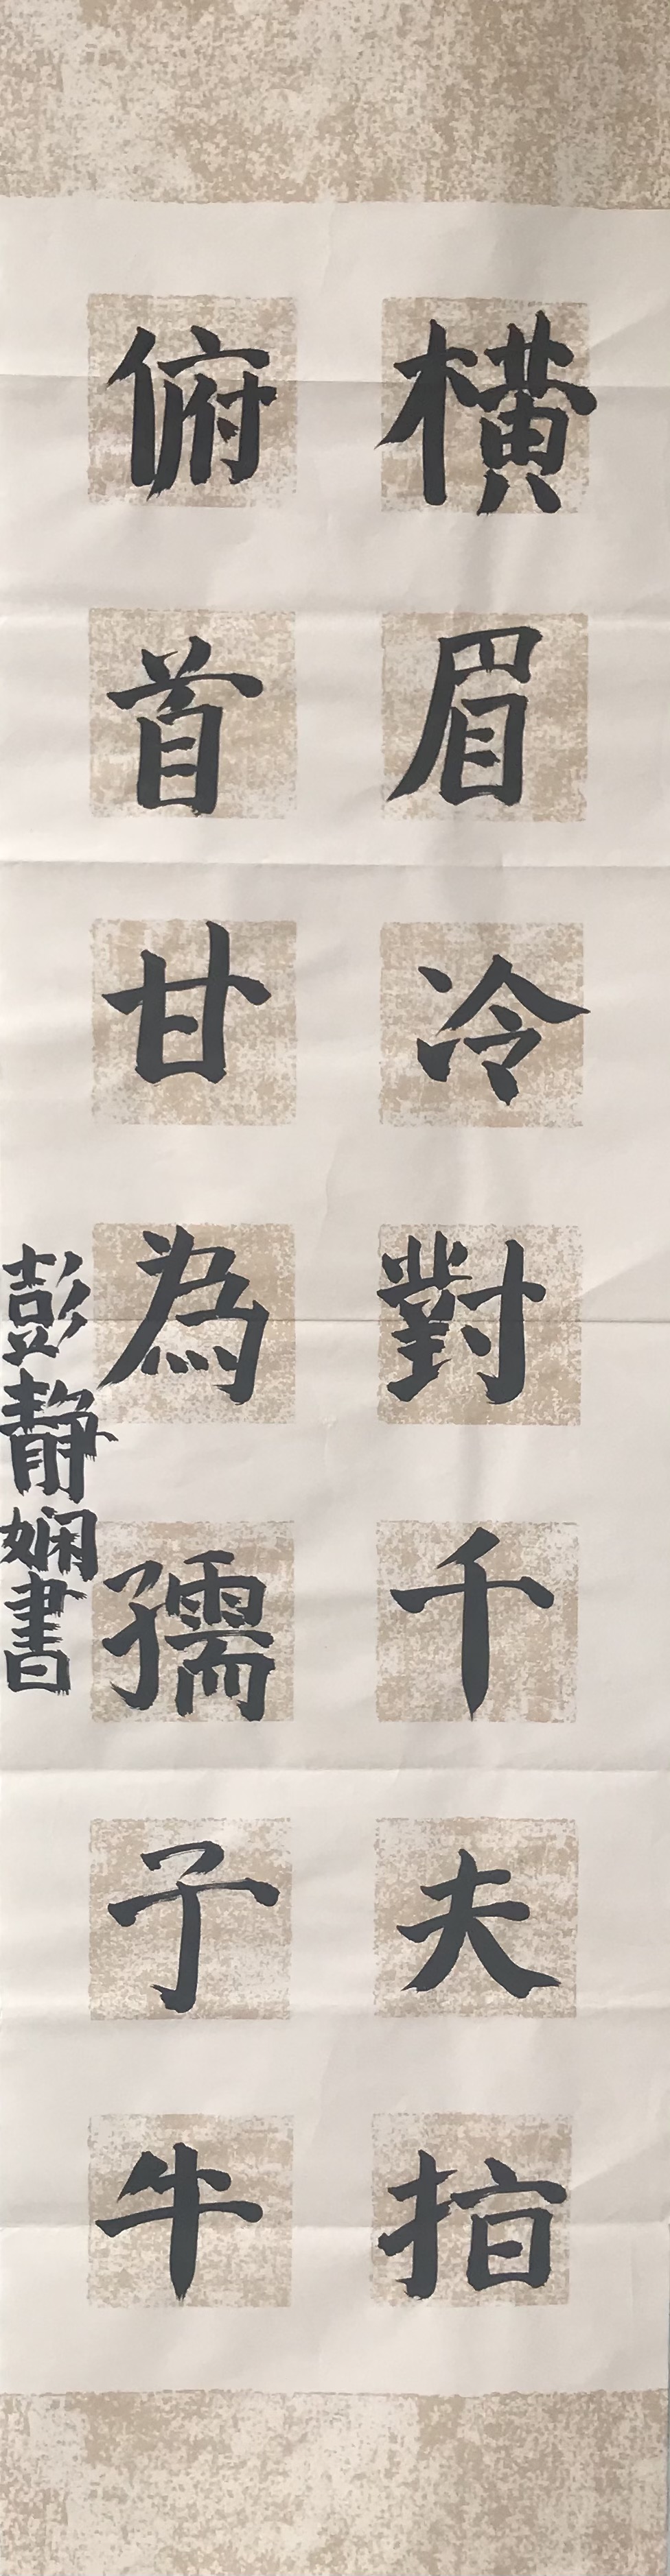 橫眉冷對千夫指
俯首甘為孺子牛
彭靜嫻書